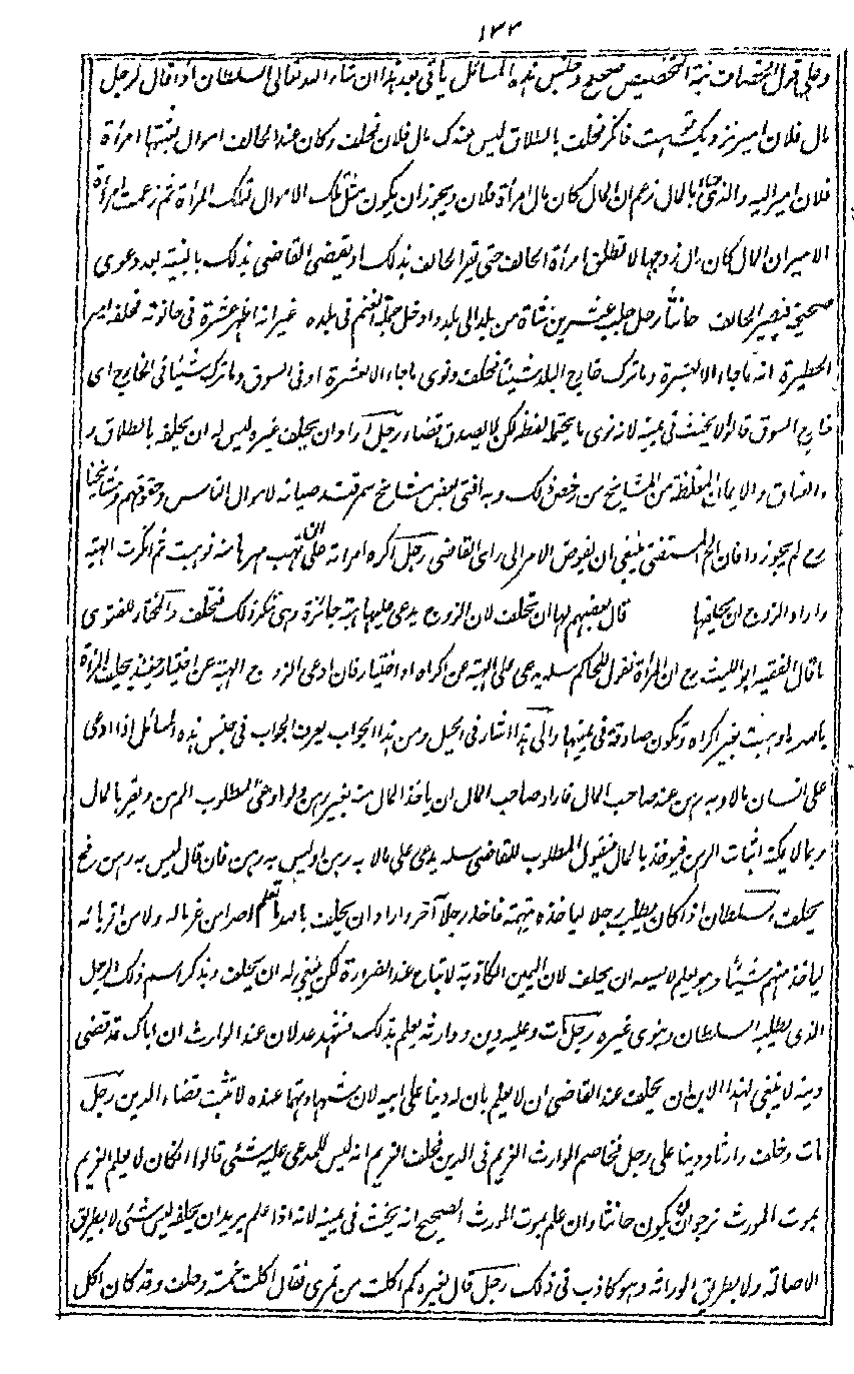 ١٣٣
وعلى قول الخصاف نية التخصيص صحيح وجنس هذه المسائل يأتى بعد هذا ان شاء الله تعالى السلطان اذا قال لرجل
مال فلان امير نزديك تست فانكر فحلف بالطلاق ليس عندك مال فلان فحلف وكان عند الحالف اموال بعثتها امرأة
فلان امير اليه والذى جاء بالمال زعم ان المال كان مال امرأة فلان ويجوز ان يكون مثل تلك الاموال لتلك المرأة ثم زعمت امرأة
الامير ان المال كان مال زوجها لا تطلق امرأة الحالف حتى يقر الحالف بذلك او يقضى القاضى بذلك بالبينة بعد دعوى
صحيحة فيصير الحالف حانثا رجل جلب عشرين شاة من بلد الى بلد وادخل جملة الغنم فى بلده غير انه اظهر عشرة فى حانوته فحلفه امير
الحظيرة انه ما جاء الا بعشرة وما ترك خارج البلد شيئا فحلف ونوى ما جاء الا بعشرة او فى السوق وما ترك شيئا فى الخارج اى
خارج السوق قالوا لا يحنث فى يمينه لانه نوى ما يحتمله لفظه لكن لا يصدق قضاء رجل اراد ان يحلف غيره ليس له ان يحلفه بالطلاق و
والعتاق والايمان المغلظة من المشايخ من رخص ذلك وبه افتى بعض مشايخ سمرقند صيانة لاموال الناس وحقوقهم ومشايخنا
رح لم يجوزوا فان الح المستفتى ينبغى ان يفوض الامر الى راى القاضى رجل اكره امرأته على ان تهب مهرها منه فوهبت ثم انكرت الهبة
واراد الزوج ان يحلفها قال بعضهم لها ان تحلف لان الزوج يدعى عليها هبة جائزة وهى تنكر ذلك فتحلف والمختار للفتوى
ما قال الفقيه ابو الليث رح ان المرأة تقول للحاكم سله يدعى على الهبة عن اكراه او اختيار فان ادعى الزوج الهبة عن اختيار حينئذ يحلف المرأة
بالله ما وهبت بغير اكراه وتكون صادقة فى يمينها والى هذا اشار فى الحيل ومن هذا الجواب يعرف الجواب فى جنس هذه المسائل اذا ادعى
على انسان مالا وبه رهن عند صاحب المال فاراد صاحب المال ان ياخذ المال منه بغير رهن ولو ادعى المطلوب الرهن ويقر بالمال
ربما لا يمكنه اثبات الرهن فيؤخذ بالمال فيقول المطلوب للقاضى سله يدعى على مالا به رهن او ليس به رهن فان قال ليس به رهن رح
يحلف السلطان اذا كان يطلب رجلا لياخذه بتهمة فاخذ رجلا آخر واراد ان يحلف بالله ما تعلم احدا من غرمائه ولا من اقربائه
لياخذ منهم شيئا وهو يعلم لا يسعه ان يحلف لان اليمين الكاذبة لا تباح عند الضرورة لكن ينبغى له ان يحلف ويذكر اسم ذلك الرجل
الذى يطلبه السلطان وينوى غيره رجل مات وعليه دين ووارثه يعلم بذلك فشهد عدلان عند الوارث ان اباك قد قضى
دينه لا ينبغى لهذا الابن ان يحلف عند القاضى ان لا يعلم بان له دينا على ابيه لان شهادتهما عنده لا تثبت قضاء الدين رجل
مات وخلف وارثا ودينا على رجل فخاصم الوارث الغريم فى الدين فحلف الغريم انه ليس للمدعى عليه شئى قالوا ان كان لا يعلم الغريم
بموت المورث نرجو ان لا يكون حانثا وان علم بموت المورث الصحيح انه يحنث فى يمينه لانه اذا علم يريد ان يحلفه ليس شئى لا بطريق
الاصالة ولا بطريق الوراثة وهو كاذب فى ذلك رجل قال لغيره كم اكلت من تمرى فقال اكلت خمسة وحلف وقد كان اكل